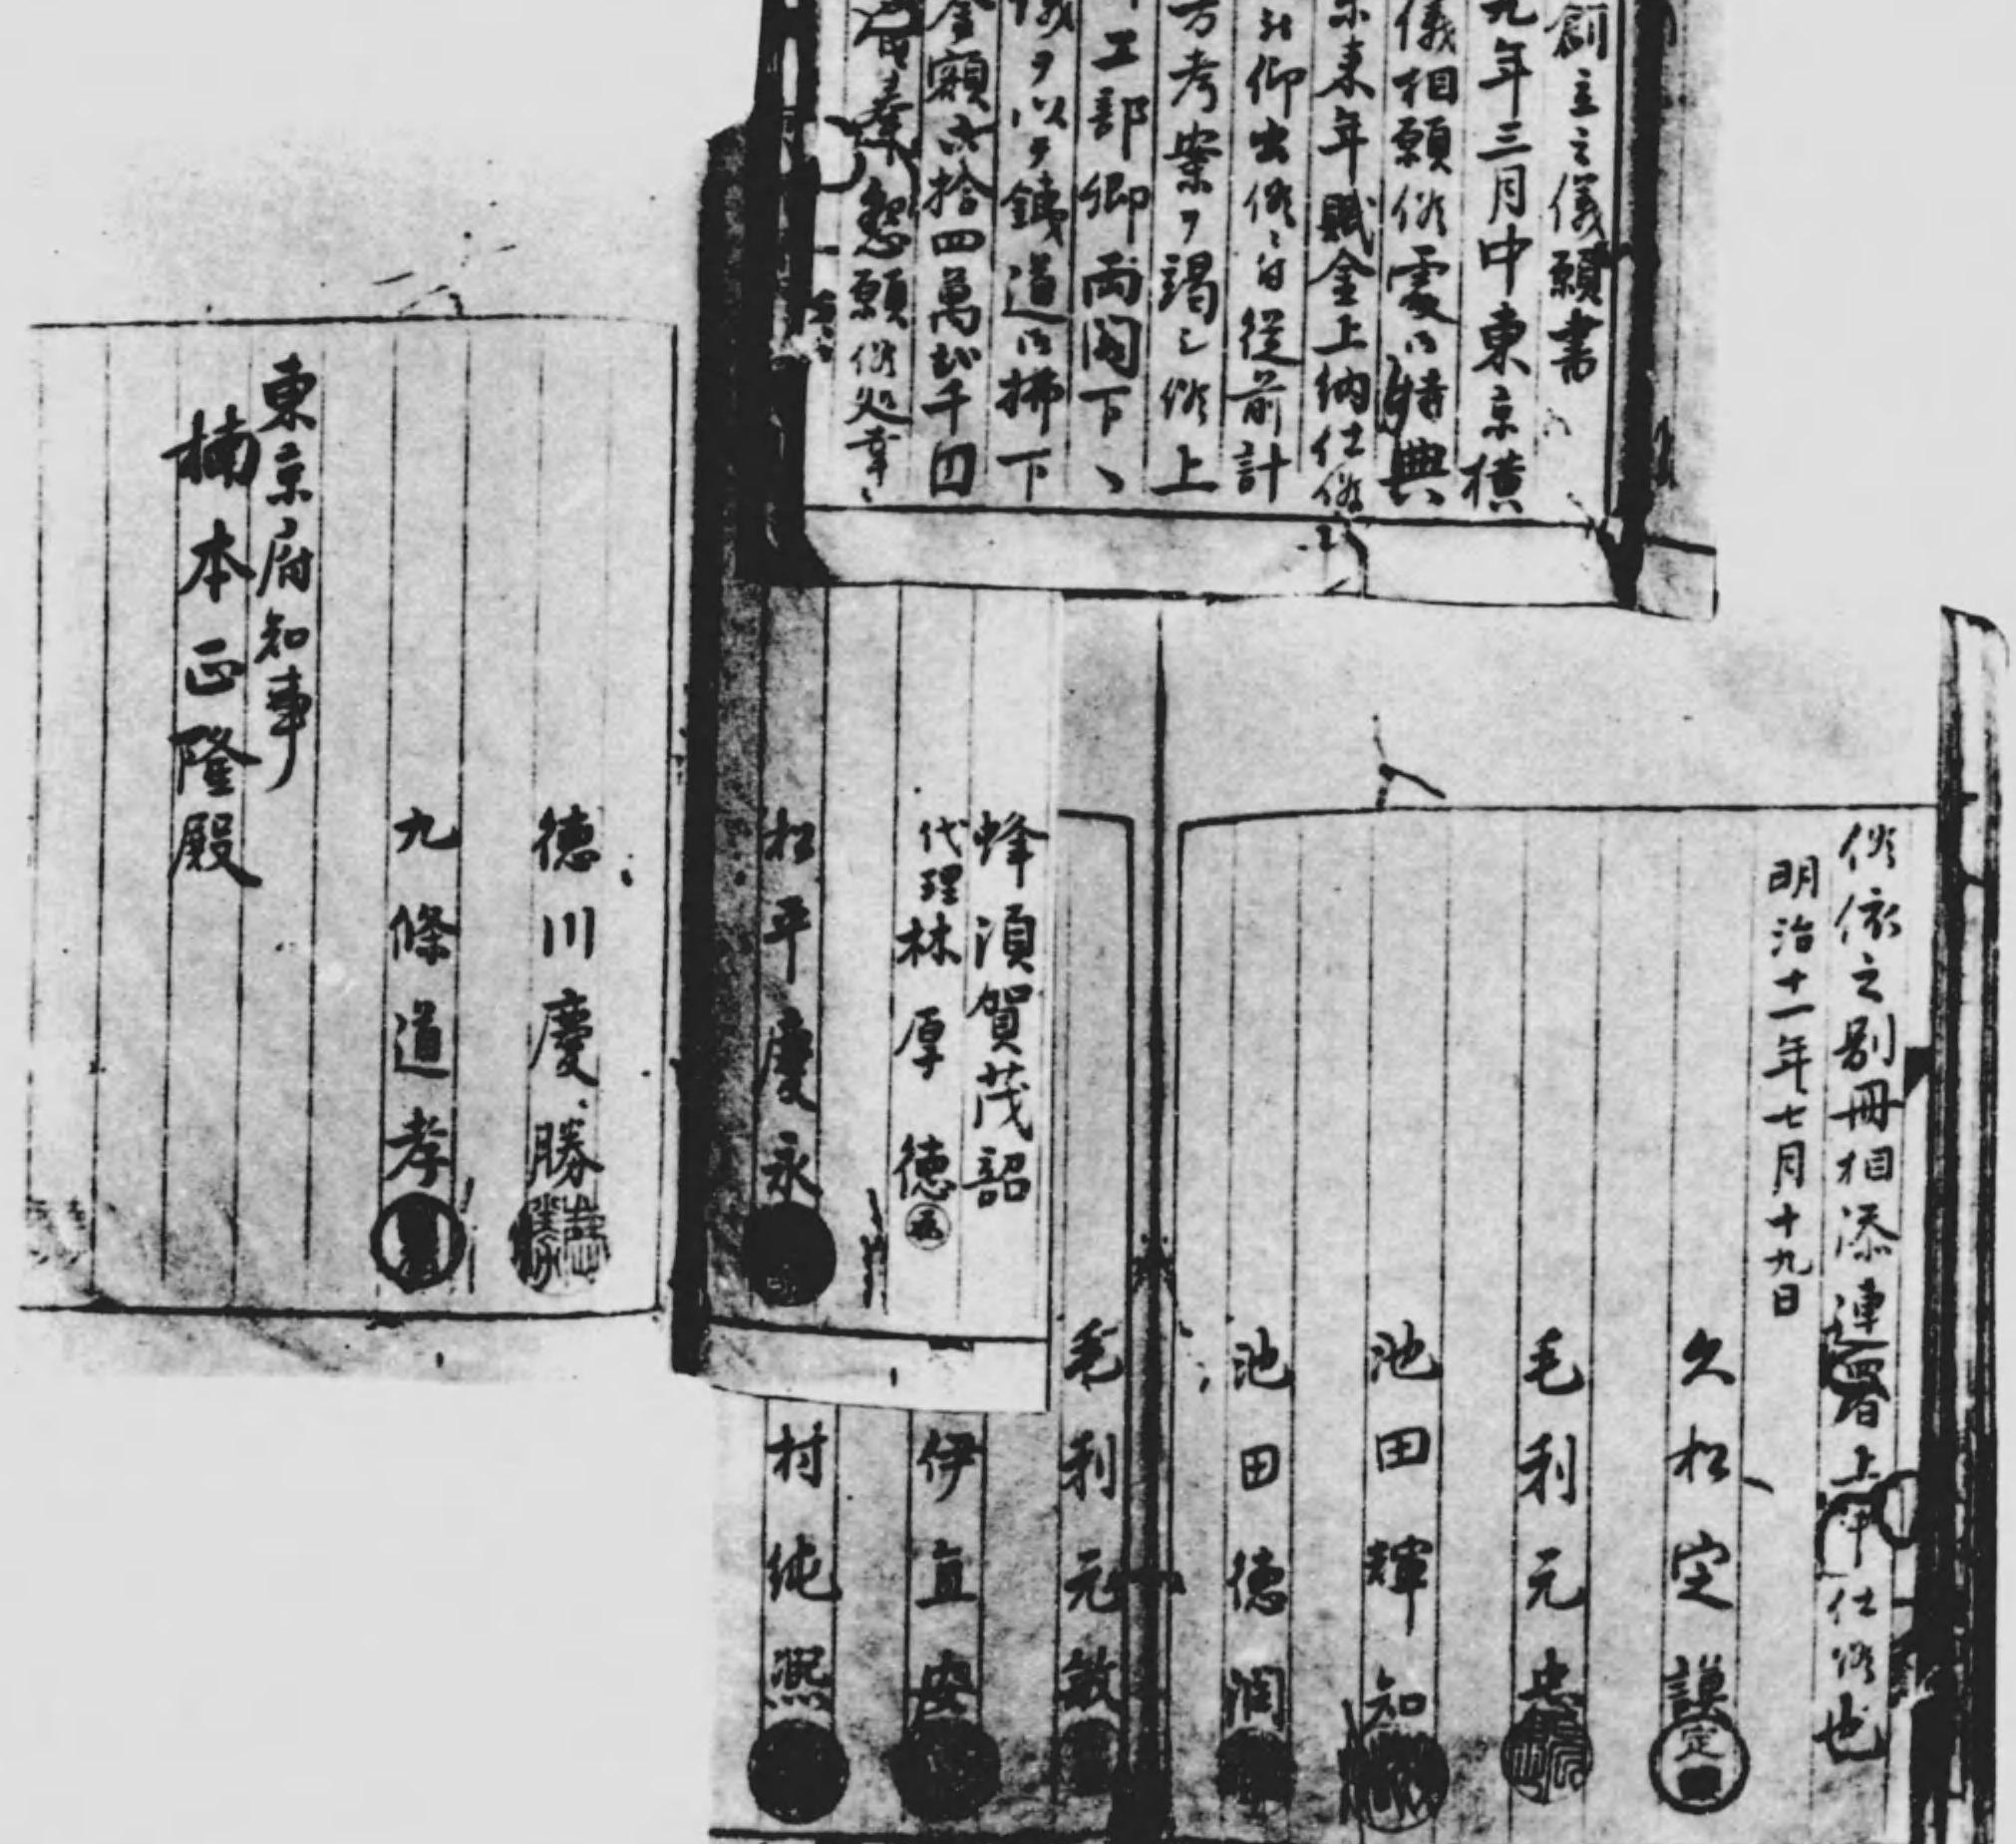 創立之儀願書
九年三月中東京横
儀相願候處御特典
来年賦金上納仕候
被仰出候ニ付従前計
方考案ヲ謁シ候上
工部卿両閣下ヘ
儀ヲ以テ鉄道御拂下
金額六拾四萬弐千四
奉懇願候処幸ニ
候依之別冊相添連署上申仕候也
明治十一年七月十九日
久松定謨
定
毛利元忠
池田輝知
池田徳潤
毛利元敏
伊直安
村純熙
蜂須賀茂韶
代理林厚徳
松平慶永
徳川慶勝
九條道孝
東京府知事
楠本正隆殿